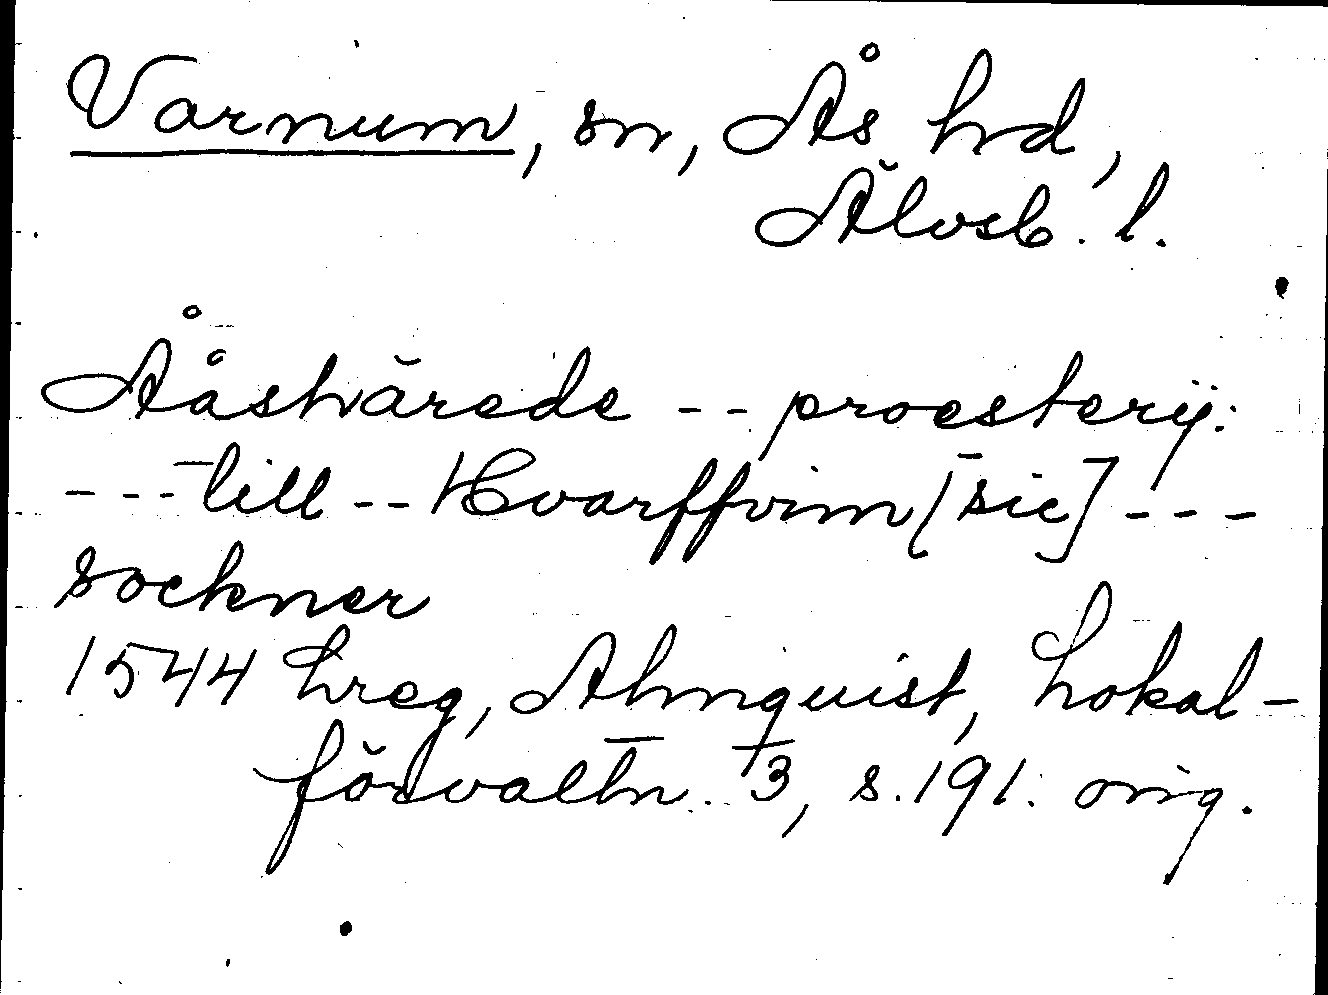 Varnum, sn, Ås hd,
Älvsb. l.
Ååshärede -- proesterij:
--- till -- Hvarffvim [sic] ---
sockner
1544 Lreg, Almquist, Lokal-
förvaltn. 3, s. 191. orig.